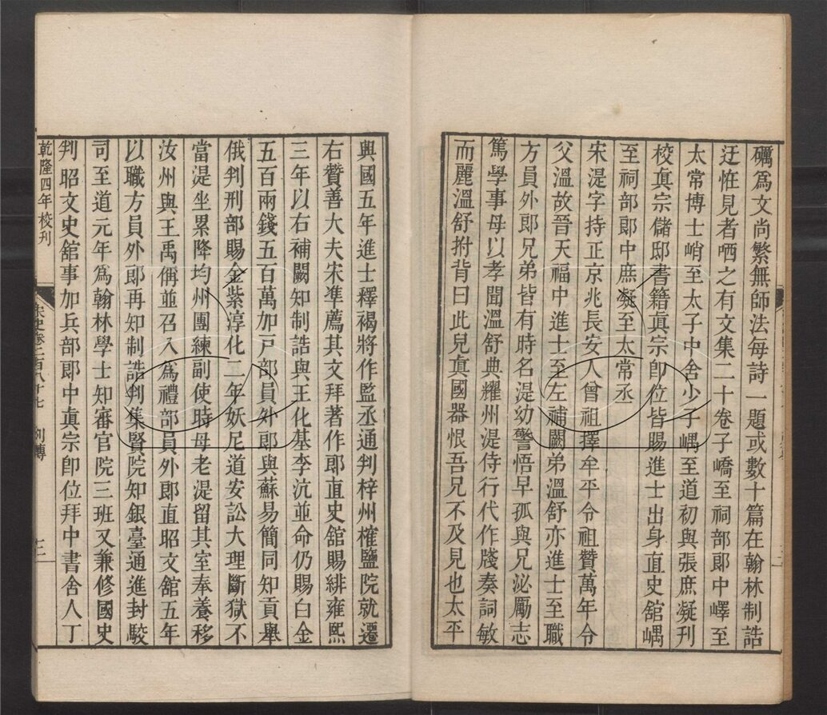 礪爲文尚繁無師法每詩一題或數十篇在翰林制誥
迂怪見者哂之有文集二十卷子嶠至祠部郎中嶧至
太常博士峭至太子中舍少子嵎至道初與張庶凝刋
校眞宗儲邸書籍眞宗卽位皆賜進士出身直史舘嵎
至祠部郎中庶凝至太常丞
宋湜字持正京兆長安人曾祖擇牟平令祖贊萬年令
父溫故晉天福中進士至左補闕弟溫舒亦進士至職
方員外郎兄弟皆有時名湜幼警悟早孤與兄泌勵志
篤學事母以孝聞溫舒典耀州湜侍行代作牋奏詞敏
而麗溫舒拊背曰此兒眞國器恨吾兄不及見也太平
興國五年進士釋褐將作監丞通判梓州榷鹽院就遷
右贊善大夫宋準薦其文拜著作郎直史舘賜緋雍熙
三年以右補闕知制誥與王化基李沆並命仍賜白金
五百兩錢五百萬加戸部員外郎與蘇易簡同知貢舉
俄判刑部賜金紫淳化二年妖尼道安訟大理斷獄不
當湜坐累降均州團練副使時母老湜留其室奉養移
汝州與王禹偁並召入爲禮部員外郎直昭文舘五年
以職方員外郎再知制誥判集賢院知銀臺通進封駮
司至道元年爲翰林學士知審官院三班又兼修國史
判昭文史舘事加兵部郎中眞宗卽位拜中書舍人丁
乾隆四年校刋
宋史卷二百八十七 列傳